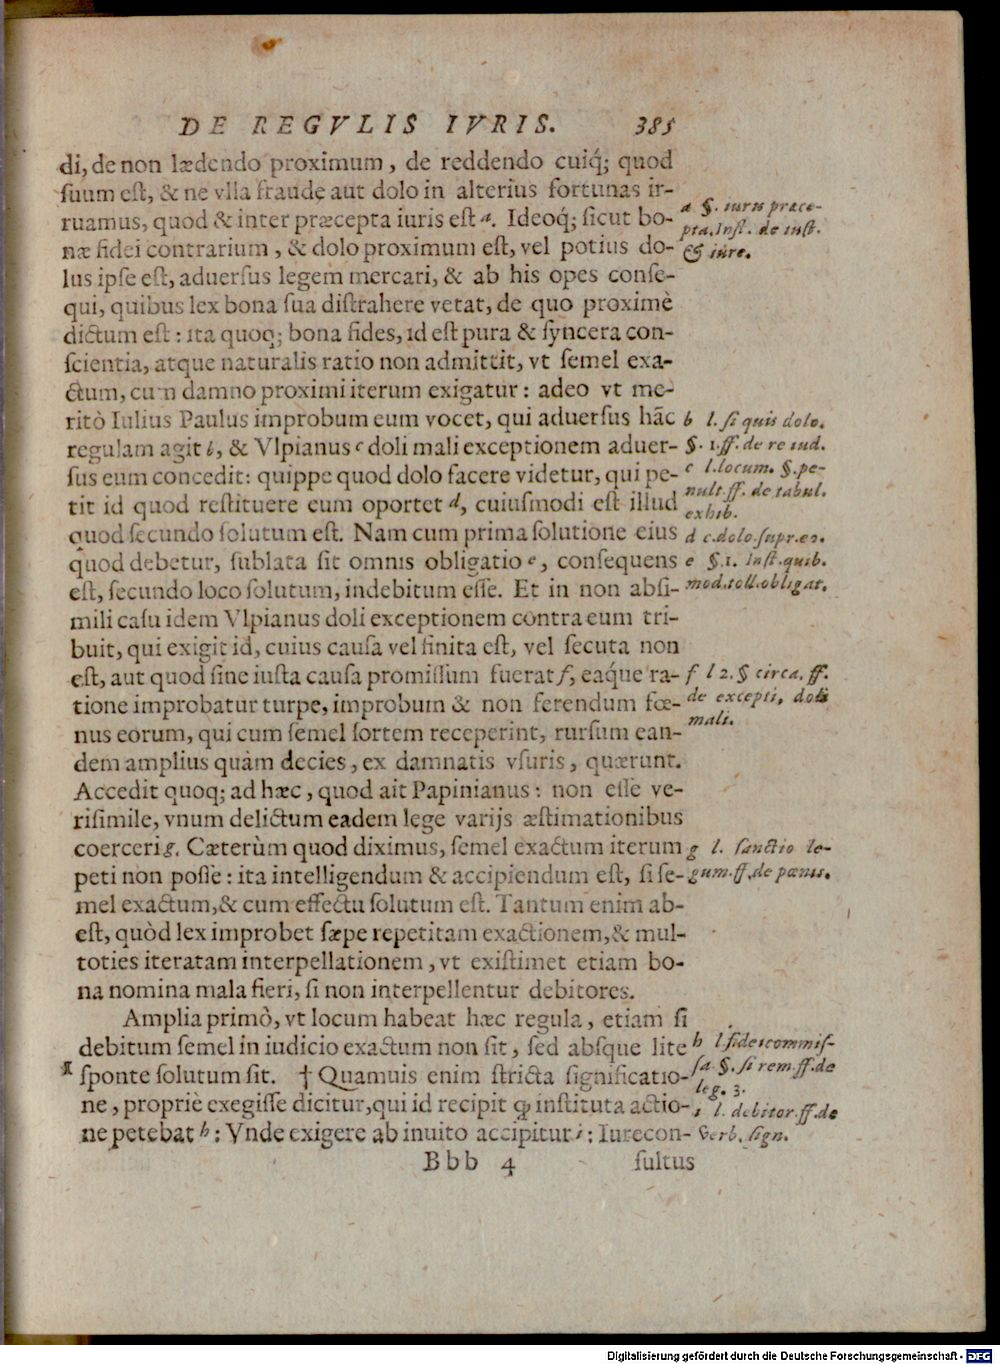 DE REGVLIS IVRIS. 385
di, de non lædendo proximum, de reddendo cuiq́; quod
ſuum eſt, & ne vlla fraude aut dolo in alterius fortunas ir-
ruamus, quod & inter præcepta iuris eſt a. Ideoq́; ſicut bo-
næ fidei contrarium, & dolo proximum eſt, vel potius do-
lus ipſe eſt, aduerſus legem mercari, & ab his opes conſe-
qui, quibus lex bona ſua diſtrahere vetat, de quo proximè
dictum eſt: ita quoq; bona fides, id eſt pura & ſyncera con-
ſcientia, atque naturalis ratio non admittit, vt ſemel exa-
ctum, cum damno proximi iterum exigatur: adeo vt me-
ritò Iulius Paulus improbum eum vocet, qui aduerſus hāc
regulam agit b, & Vlpianus c doli mali exceptionem aduer-
ſus eum concedit: quippe quod dolo facere videtur, qui pe-
tit id quod reſtituere eum oportet d, cuiuſmodi eſt illud
quod ſecundo ſolutum eſt. Nam cum prima ſolutione eius
quod debetur, ſublata ſit omnis obligatio e, conſequens
eſt, ſecundo loco ſolutum, indebitum eſſe. Et in non abſi-
mili caſu idem Vlpianus doli exceptionem contra eum tri-
buit, qui exigit id, cuius cauſa vel finita eſt, vel ſecuta non
eſt, aut quod ſine iuſta cauſa promiſſum fuerat f, eaq́ue ra-
tione improbatur turpe, improbum & non ferendum fœ-
nus eorum, qui cum ſemel ſortem receperint, rurſum ean-
dem amplius quàm decies, ex damnatis vſuris, quærunt.
Accedit quoq; ad hæc, quod ait Papinianus: non eſſe ve-
riſimile, vnum delictum eadem lege varijs æſtimationibus
coerceri g. Cæterùm quod diximus, ſemel exactum iterum
peti non poſſe: ita intelligendum & accipiendum eſt, ſi ſe-
mel exactum, & cum effectu ſolutum eſt. Tantum enim ab-
eſt, quòd lex improbet ſæpe repetitam exactionem, & mul-
toties iteratam interpellationem, vt exiſtimet etiam bo-
na nomina mala fieri, ſi non interpellentur debitores.
Amplia primò, vt locum habeat hæc regula, etiam ſi
debitum ſemel in iudicio exactum non ſit, ſed abſque lite
1 ſponte ſolutum ſit. † Quamuis enim ſtricta ſignificatio-
ne, propriè exegiſſe dicitur, qui id recipit ꝙ inſtituta actio-
ne petebat h: Vnde exigere ab inuito accipitur i: Iurecon-
Bbb 4 ſultus
a §. iuris præce-
pta. Inſt. de iuſt.
& iure.
b l. ſi quis dolo.
§. 1. ff. de re iud.
c l. locum. §. pe-
nult. ff. de tabul.
exhib.
d c. dolo. ſupr. eo.
e §. 1. Inſt. quib.
mod. toll. obligat.
f l 2. § circa. ff.
de excepti, doli
mali.
g l. ſanctio le-
gum. ff. de pœnis.
h l. fideicommiſ-
ſa §. ſi rem. ff. de
leg. 3.
i l. debitor. ff. de
verb. ſign.
Digitalisierung gefördert durch die Deutsche Forschungsgemeinschaft - DFG